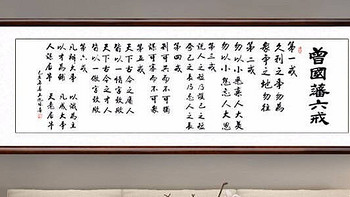 曾國藩六戒
第一戒
久利之事勿為
眾爭之地勿往
第二戒
勿以小惡棄人大美
勿以小怨忘人大恩
第三戒
說人之短乃護己之短
夸己之長乃忌人之長
第四戒
利可共而不可獨
謀可寡而不可眾
第五戒
天下古今之庸人
皆以一惰字致敗
天下古今之才人
皆以一傲字致敗
第六戒
凡辦大事
以識為主
以才為輔
凡成大事
人謀居半
天意居半